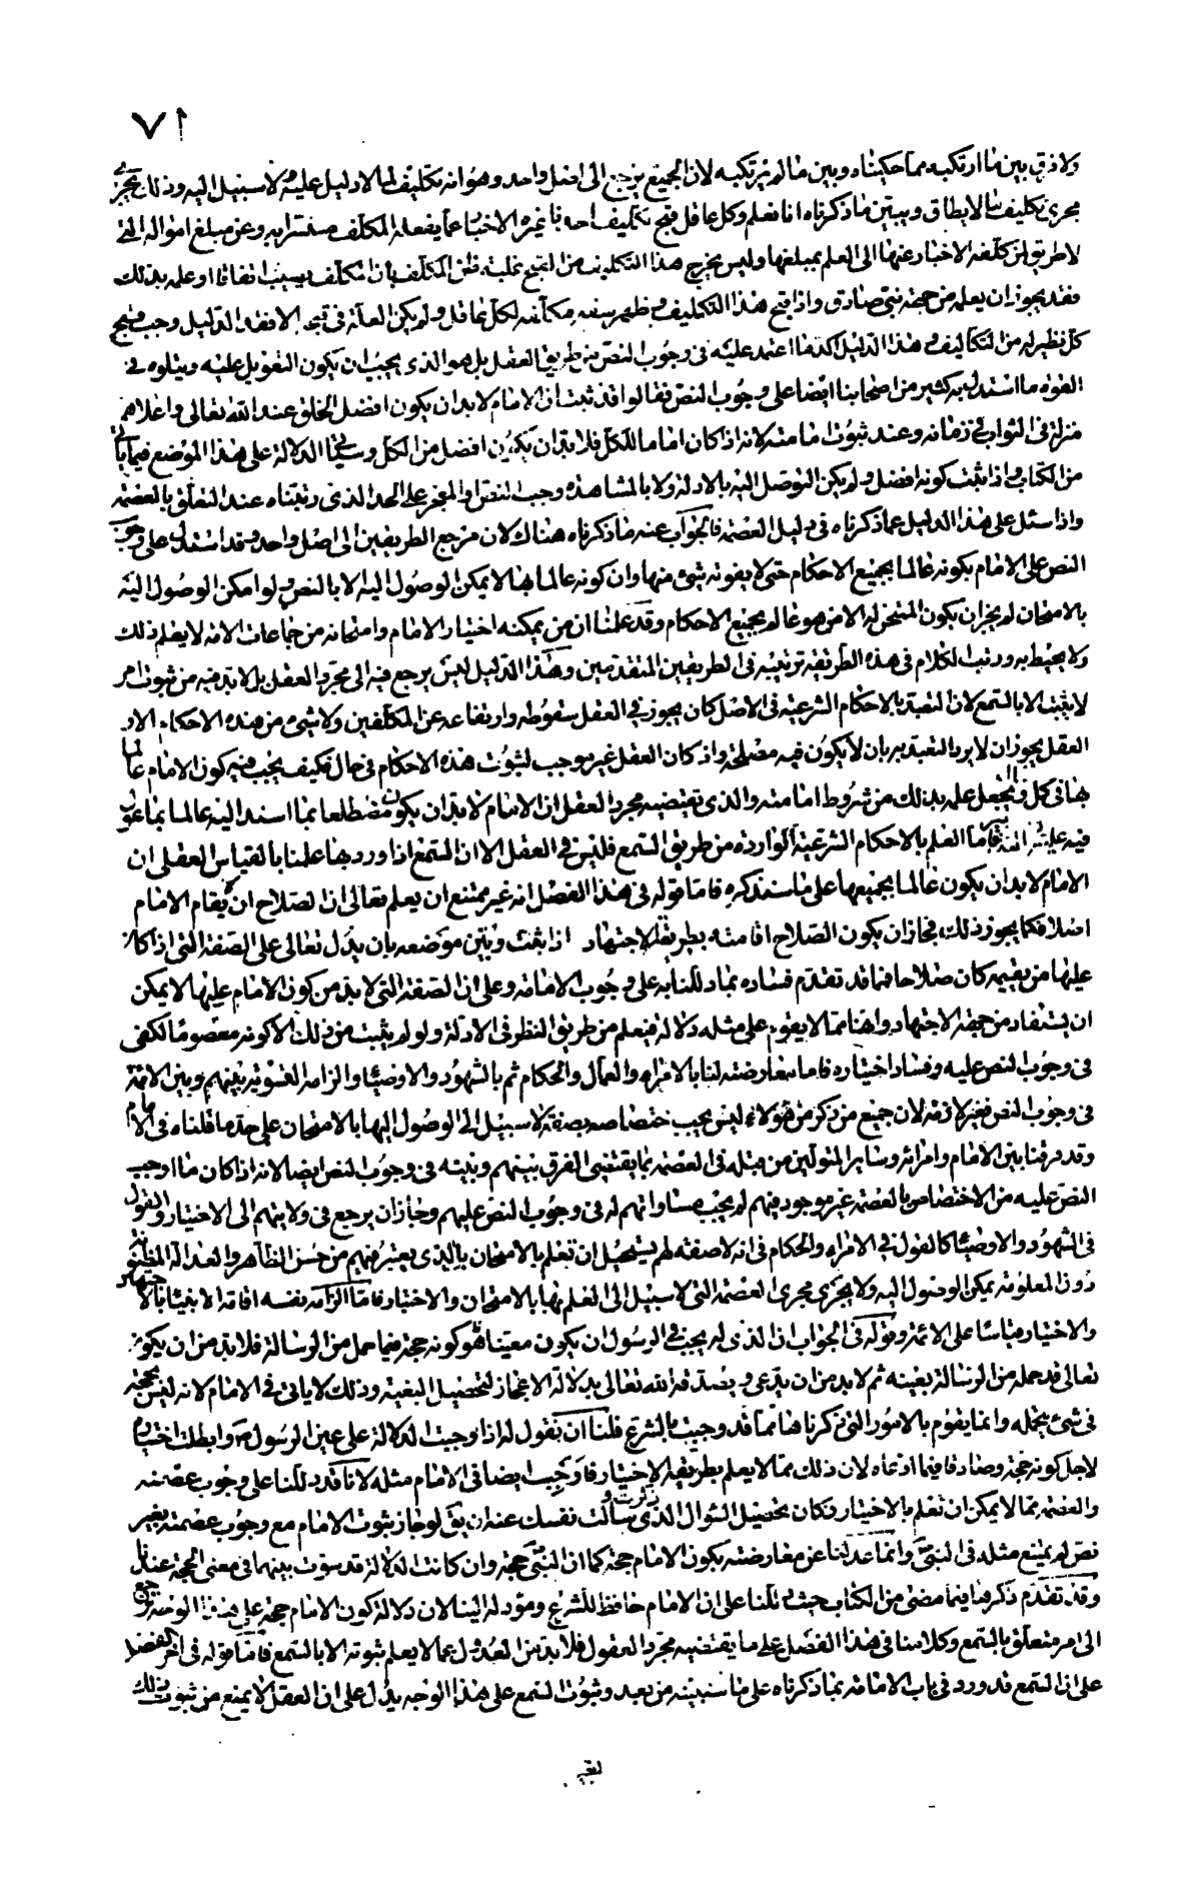 ٧١
ولا فرق بين ما ارتكبه مما حكيناه وبين ما لم يرتكبه لان الجميع يرجع الى اصل واحد وهو انه تكليف لما لا دليل عليه ولا سبيل اليه وذلك يجرى
مجرى تكليف ما لا يطاق ويبين ما ذكرناه انا نعلم وكل عاقل قبح تكليف احدنا غيره الاخبار عما يفعله المكلف مستسرا به وعن مبلغ امواله التى
لا طريق لمن كلفه الاخبار عنها الى العلم بمبلغها وليس يخرج هذا التكليف من القبح تغليب ظن المكلف بان المكلف يصيب اتفاقا او علمه بذلك
فقد يجوز ان يعلمه من جهة نبى صادق واذا قبح هذا التكليف وظهر سفه مكلفه لكل عاقل ولم يكن العلة فى قبحه الا فقد الدليل وجب قبح
كل نظير له من التكاليف وهذا الدليل اكد ما اعتمد عليه فى وجوب النص من طريق العقل بل هو الذى يجب ان يكون التعويل عليه ويتلوه فى
القوة ما استدل به كثير من اصحابنا ايضا على وجوب النص فقالوا قد ثبت ان الامام لا بد ان يكون افضل الخلق عند الله تعالى واعلاهم
منزلة فى الثواب فى زمانه وعند ثبوت امامته لانه اذا كان اماما للكل فلا بد ان يكون افضل من الكل وسياتى الدلالة على هذا الموضع فيما ياتى
من الكتاب واذا ثبت كونه افضل ولم يكن التوصل اليه بالادلة ولا بالمشاهدة وجب النص او المعجز على الحد الذى رتبناه عند التعلق بالعصمة
واذا سئل على هذا الدليل عما ذكرناه فى دليل العصمة فالجواب عنه ما ذكرناه هناك لان مرجع الطريقين الى اصل واحد وقد استدل على وجوب
النص على الامام بكونه عالما بجميع الاحكام حتى لا يفوته شئ منها وان كونه عالما بها لا يمكن الوصول اليه الا بالنص ولو امكن الوصول اليه
بالامتحان لم يجز ان يكون الممتحن له الا من هو عالم بجميع الاحكام وقد علمنا ان من يمكنه اختيار الامام وامتحانه من جماعات الامة لا يعلم ذلك
ولا يحيط به ورتب الكلام فى هذه الطريقة ترتيبه فى الطريقين المتقدمين وهذا الدليل ليس يرجع فيه الى مجرد العقل بل لا بد فيه من ثبوت امر
لا يثبت الا بالسمع لان التعبد بالاحكام الشرعية فى الاصل كان يجوز فى العقل سقوطه وارتفاعه عن المكلفين ولا شئ من هذه الاحكام الا و
العقل يجوز ان لا يرد التعبد به بان لا يكون فيه مصلحة واذ كان العقل غير موجب لثبوت هذه الاحكام فى حال فكيف يجب فيه كون الامام عالما
بها فى كل ونجعل علمه بذلك من شروط امامته والذى يقتضيه مجرد العقل ان الامام لا بد ان يكون مضطلعا بما اسند اليه عالما بما عول
فيه عليه فاما العلم بالاحكام الشرعية الواردة من طريق السمع فليس فى العقل الا ان السمع اذا ورد بها علمنا بالقياس العقلى ان
الامام لا بد ان يكون عالما بجميعها على ما سنذكره فاما قوله فى هذا الفصل انه غير ممتنع ان يعلم تعالى ان الصلاح ان يقام الامام
اصلا فكما يجوز ذلك فجائز ان يكون الصلاح اقامته بطريقة الاجتهاد اذا بينت وبين موضعه بان يدل تعالى على الصفة التى اذا كان
عليها من يقيمه كان صلاحا فما قد تقدم فساده بما دللنا به على وجوب الامامة وعلى ان الصفة التى لا بد من كون الامام عليها لا يمكن
ان يستفاد من جهة الاجتهاد وانها مما لا يقوم على مثله دلالة فيعلم من طريق النظر فى الادلة ولو لم يثبت من ذلك الا كونه معصوما لكفى
فى وجوب النص عليه وفساد اختياره فاما معارضته لنا بالامراء والعمال والحكام ثم بالشهود والاوصياء والزامه التسوية بينهم وبين الائمة
فى وجوب النص فغير لازمة لان جميع من ذكر من هؤلاء ليس يجب اختصاصه بصفة لا سبيل الى الوصول اليها بالامتحان على حد ما قلناه فى الامام
وقد فرقنا بين الامام وامرائه وسائر المتولين من قبله فى العصمة بما يقتضى الفرق بينهم وبينه فى وجوب النص ايضا لانه اذا كان ما اوجب
النص عليه من الاختصاص بالعصمة غير موجود فيهم لم يجب مساواتهم له فى وجوب النص عليهم وجاز ان يرجع فى ولايتهم الى الاختيار والقول
فى الشهود والاوصياء كالقول فى الامراء والحكام فى انه لا صفة لهم يستحيل ان تعلم بالامتحان بل الذى يعتبر فيهم من حسن الظاهر والعدالة المظنونة
دون المعلومة يمكن الوصول اليه ولا يجرى مجرى العصمة التى لا سبيل الى العلم بها بالامتحان والاختيار فاما الزامه نفسه اقامة الانبياء بالاجتهاد
والاختيار قياسا على الائمة وقوله فى الجواب ان الذى له يجب فى الرسول ان يكون معينا هو كونه حجة فيما حمل من الرسالة فلا بد من ان يكون
تعالى قد حمله من الرسالة بعينه ثم لا بد من ان يدعى ويصدقه الله تعالى بدلالة الاعجاز لتحصيل البغية وذلك لا ياتى فى الامام لانه ليس بحجة
فى شئ يتحمله وانما يقوم بالامور التى ذكرناها مما قد وجبت بالشرع فلنا ان نقول له اذا وجبت الدلالة على عين الرسول وابطلت اختياره
لاجل كونه حجة وصادقا فيما ادعاه لان ذلك مما لا يعلم بطريقة الاختيار فاوجب ايضا فى الامام مثله لانا قد دللنا على وجوب عصمته
والعصمة مما لا يمكن ان تعلم بالاختيار فكان تحصيل السؤال الذى سالت نفسك عنه ان يق لو جاز ثبوت الامام مع وجوب عصمته بغير
نص لم يمتنع مثله فى النبى وانما عدلنا عن معارضته بكون الامام حجة كما ان النبى حجة وان كانت الدلالة قد سوت بينهما فى معنى الحجة عندنا
وقد تقدم ذكرها فيما مضى من الكتاب حيث دللنا على ان الامام حافظ للشرع ومؤد له الينا لان دلالة كون الامام حجة على هذا الوجه ترجع
الى امر متعلق بالسمع وكلامنا فى هذا الفصل على ما يقتضيه مجرد العقول فلا بد من العدول عما لا يعلم ثبوته الا بالسمع فاما قوله فى اخر الفصل
على ان السمع قد ورد فى باب الامامة بما ذكرناه على ما سنبينه من بعد وثبوت السمع على هذا الوجه يدل على ان العقل لا يمنع من ثبوت ذلك